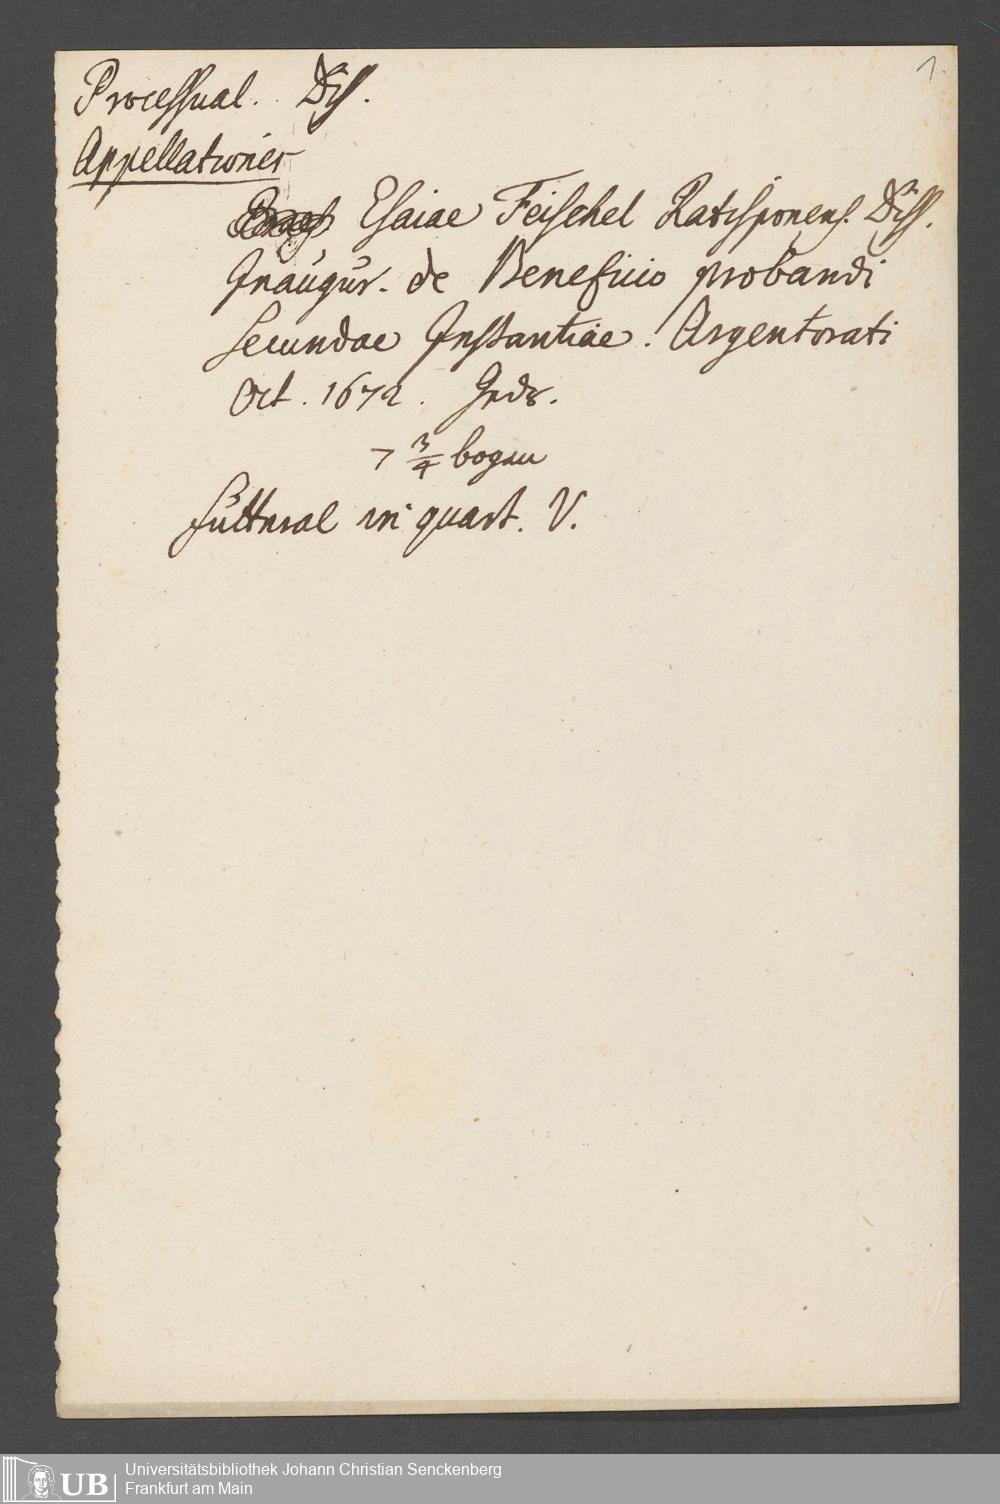 1.
Processual. Diss.
Appellationes
Esaiae Feischel Ratisponens. Diss.
Inaugur. de Beneficio probandi
secundae Instantiae. Argentorati
Oct. 1672.
7 3/4 bogen
futteral in quart. V.
UB
Universitätsbibliothek Johann Christian Senckenberg
Frankfurt am Main